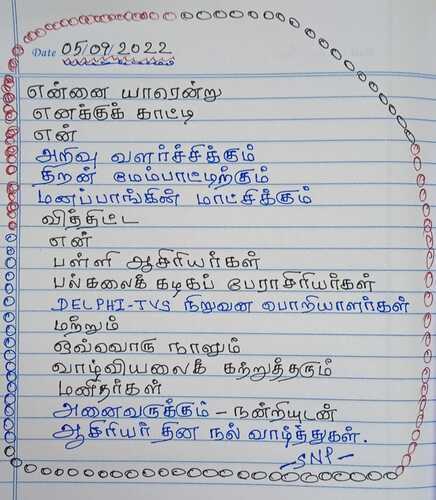 Date 05/09/2022
என்னை யாரென்று
எனக்குக் காட்டி
என்
அறிவு வளர்ச்சிக்கும்
திறன் மேம்பாட்டிற்கும்
மனப்பாங்கின் மாட்சிக்கும்
வித்திட்ட
என்
பள்ளி ஆசிரியர்கள்
பல்கலைக் கழகப் பேராசிரியர்கள்
DELPHI-TVS நிறுவன பொறியாளர்கள்
மற்றும்
ஒவ்வொரு நாளும்
வாழ்வியலைக் கற்றுத்தரும்
மனிதர்கள்
அனைவருக்கும் - நன்றியுடன்
ஆசிரியர் தின நல் வாழ்த்துகள்.
-SNP-